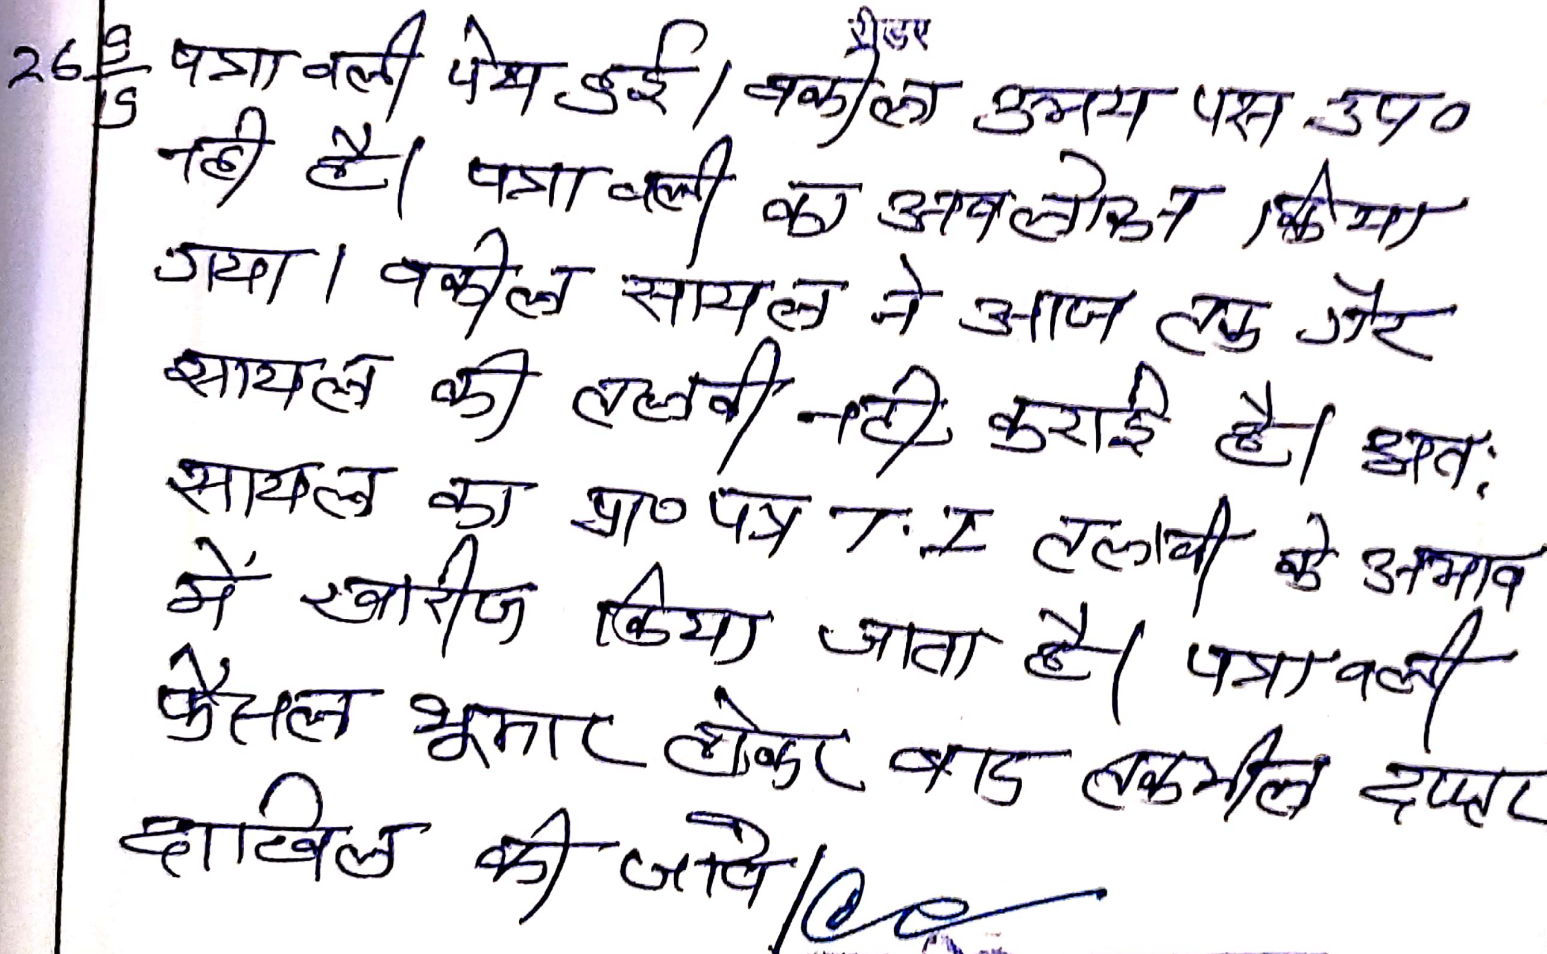 रीडर
26 9/15 पत्रावली पेश हुई। वकील उभय पक्ष उप०
नही है। पत्रावली का अवलोकन किया
गया। वकील सायल ने आज तक गैर
सायल की तलबी नही कराई है। अतः
सायल का प्रा० पत्र T.I तलबी के अभाव
में खारीज किया जाता है। पत्रावली
फैसल शूमार होकर बाद तकमील दफ्तर
दाखिल की जावे।